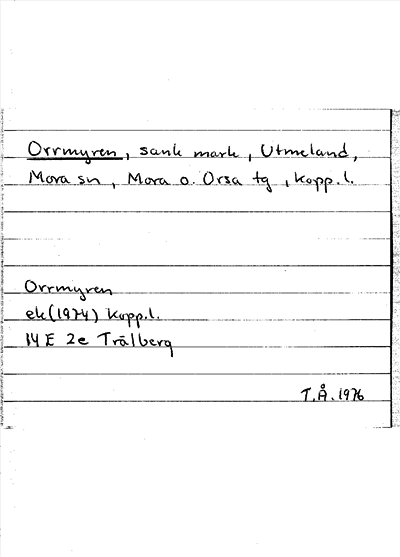 Orrmyren, sank mark, Utmeland,
Mora sn, Mora o. Orsa tg, Kopp.l.
Orrmyren
ek(1974) Kopp.l.
14 E 2e Trälberg
T.Å.1976